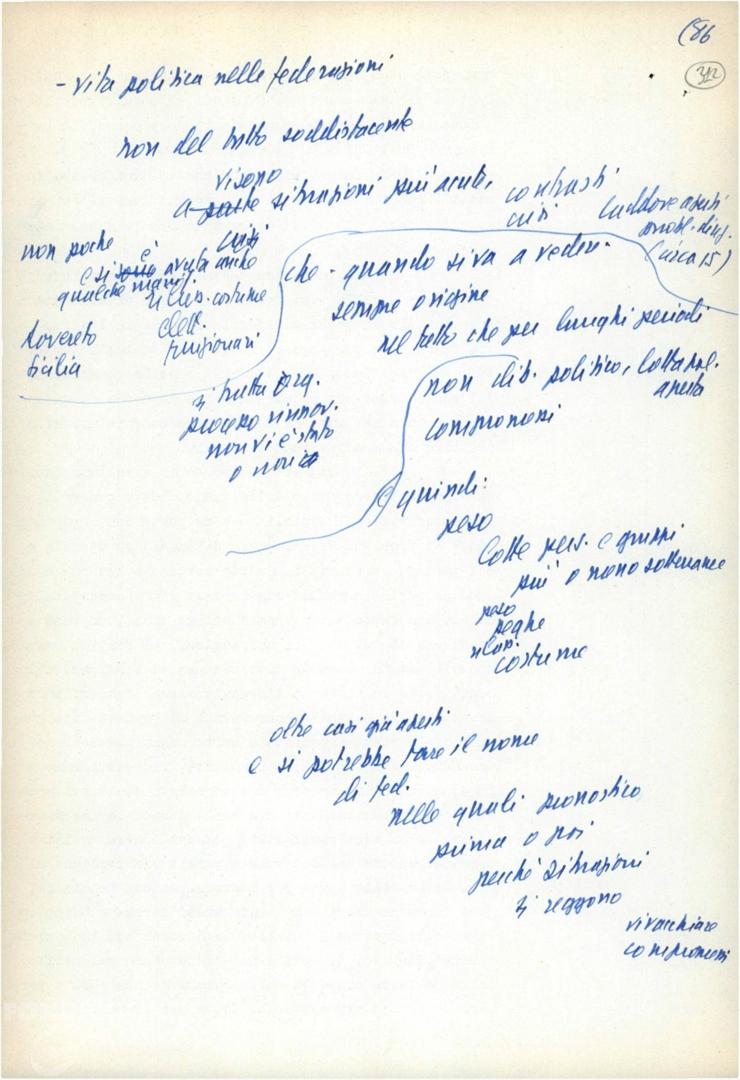 (86
312
- vita politica nelle federazioni
non del tutto soddisfacente
vi sono
a parte situazioni più acute,
contrasti
crisi
laddove aperti
probl. dirig.
(circa 15)
non poche
crisi
e si sono è avuta anche
qualche
rilass. costume
elett.
funzionari
Rovereto
Sicilia
che - quando si va a vedere -
sempre origine
nel fatto che per lunghi periodi
non dib. politico, lotta pol.
aperta
compromessi
si tratta org.
processo rinnov.
non vi è stato
o non è
quindi:
peso
lotte pers. e gruppi
più o meno sotterranee
peso
beghe
rilass.
costume
oltre casi già aperti
e si potrebbe fare il nome
di fed.
nelle quali pronostico
prima o poi
perché situazioni
si reggono
vivacchiare
compromessi